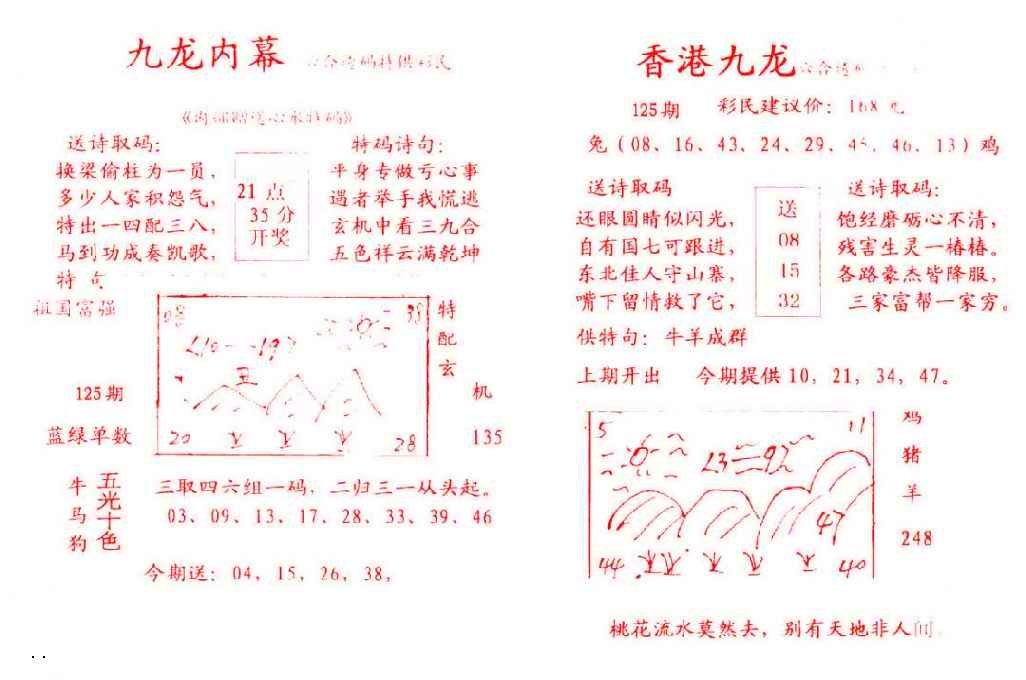 九龙内幕
送诗取码：
换梁偷柱为一员，
多少人家积怨气，
特出一四配三八，
马到功成奏凯歌，
特 句
祖国富强
21 点
35 分
开奖
特码诗句：
半身专做亏心事
遇者举手我慌逃
玄机中看三九合
五色祥云满乾坤
38
丑
20
28
特
配
玄
机
135
125期
蓝绿单数
牛
马
狗
五光十色
三取四六组一码，二归三一从头起。
03、09、13、17、28、33、39、46
今期送：04、15、26、38，
香港九龙
125期 彩民建议价：168
兔（08、16、43、24、29、45、46、13）鸡
送诗取码
还眼圆睛似闪光，
自有国七可跟进，
东北佳人守山寨，
嘴下留情救了它，
送
08
15
32
送诗取码：
饱经磨砺心不清，
残害生灵一椿椿。
各路豪杰皆降服，
三家富帮一家穷。
供特句：牛羊成群
上期开出 今期提供10，21，34，47。
5
11
47
44
40
鸡
猪
羊
248
桃花流水莫然去，别有天地非人间。